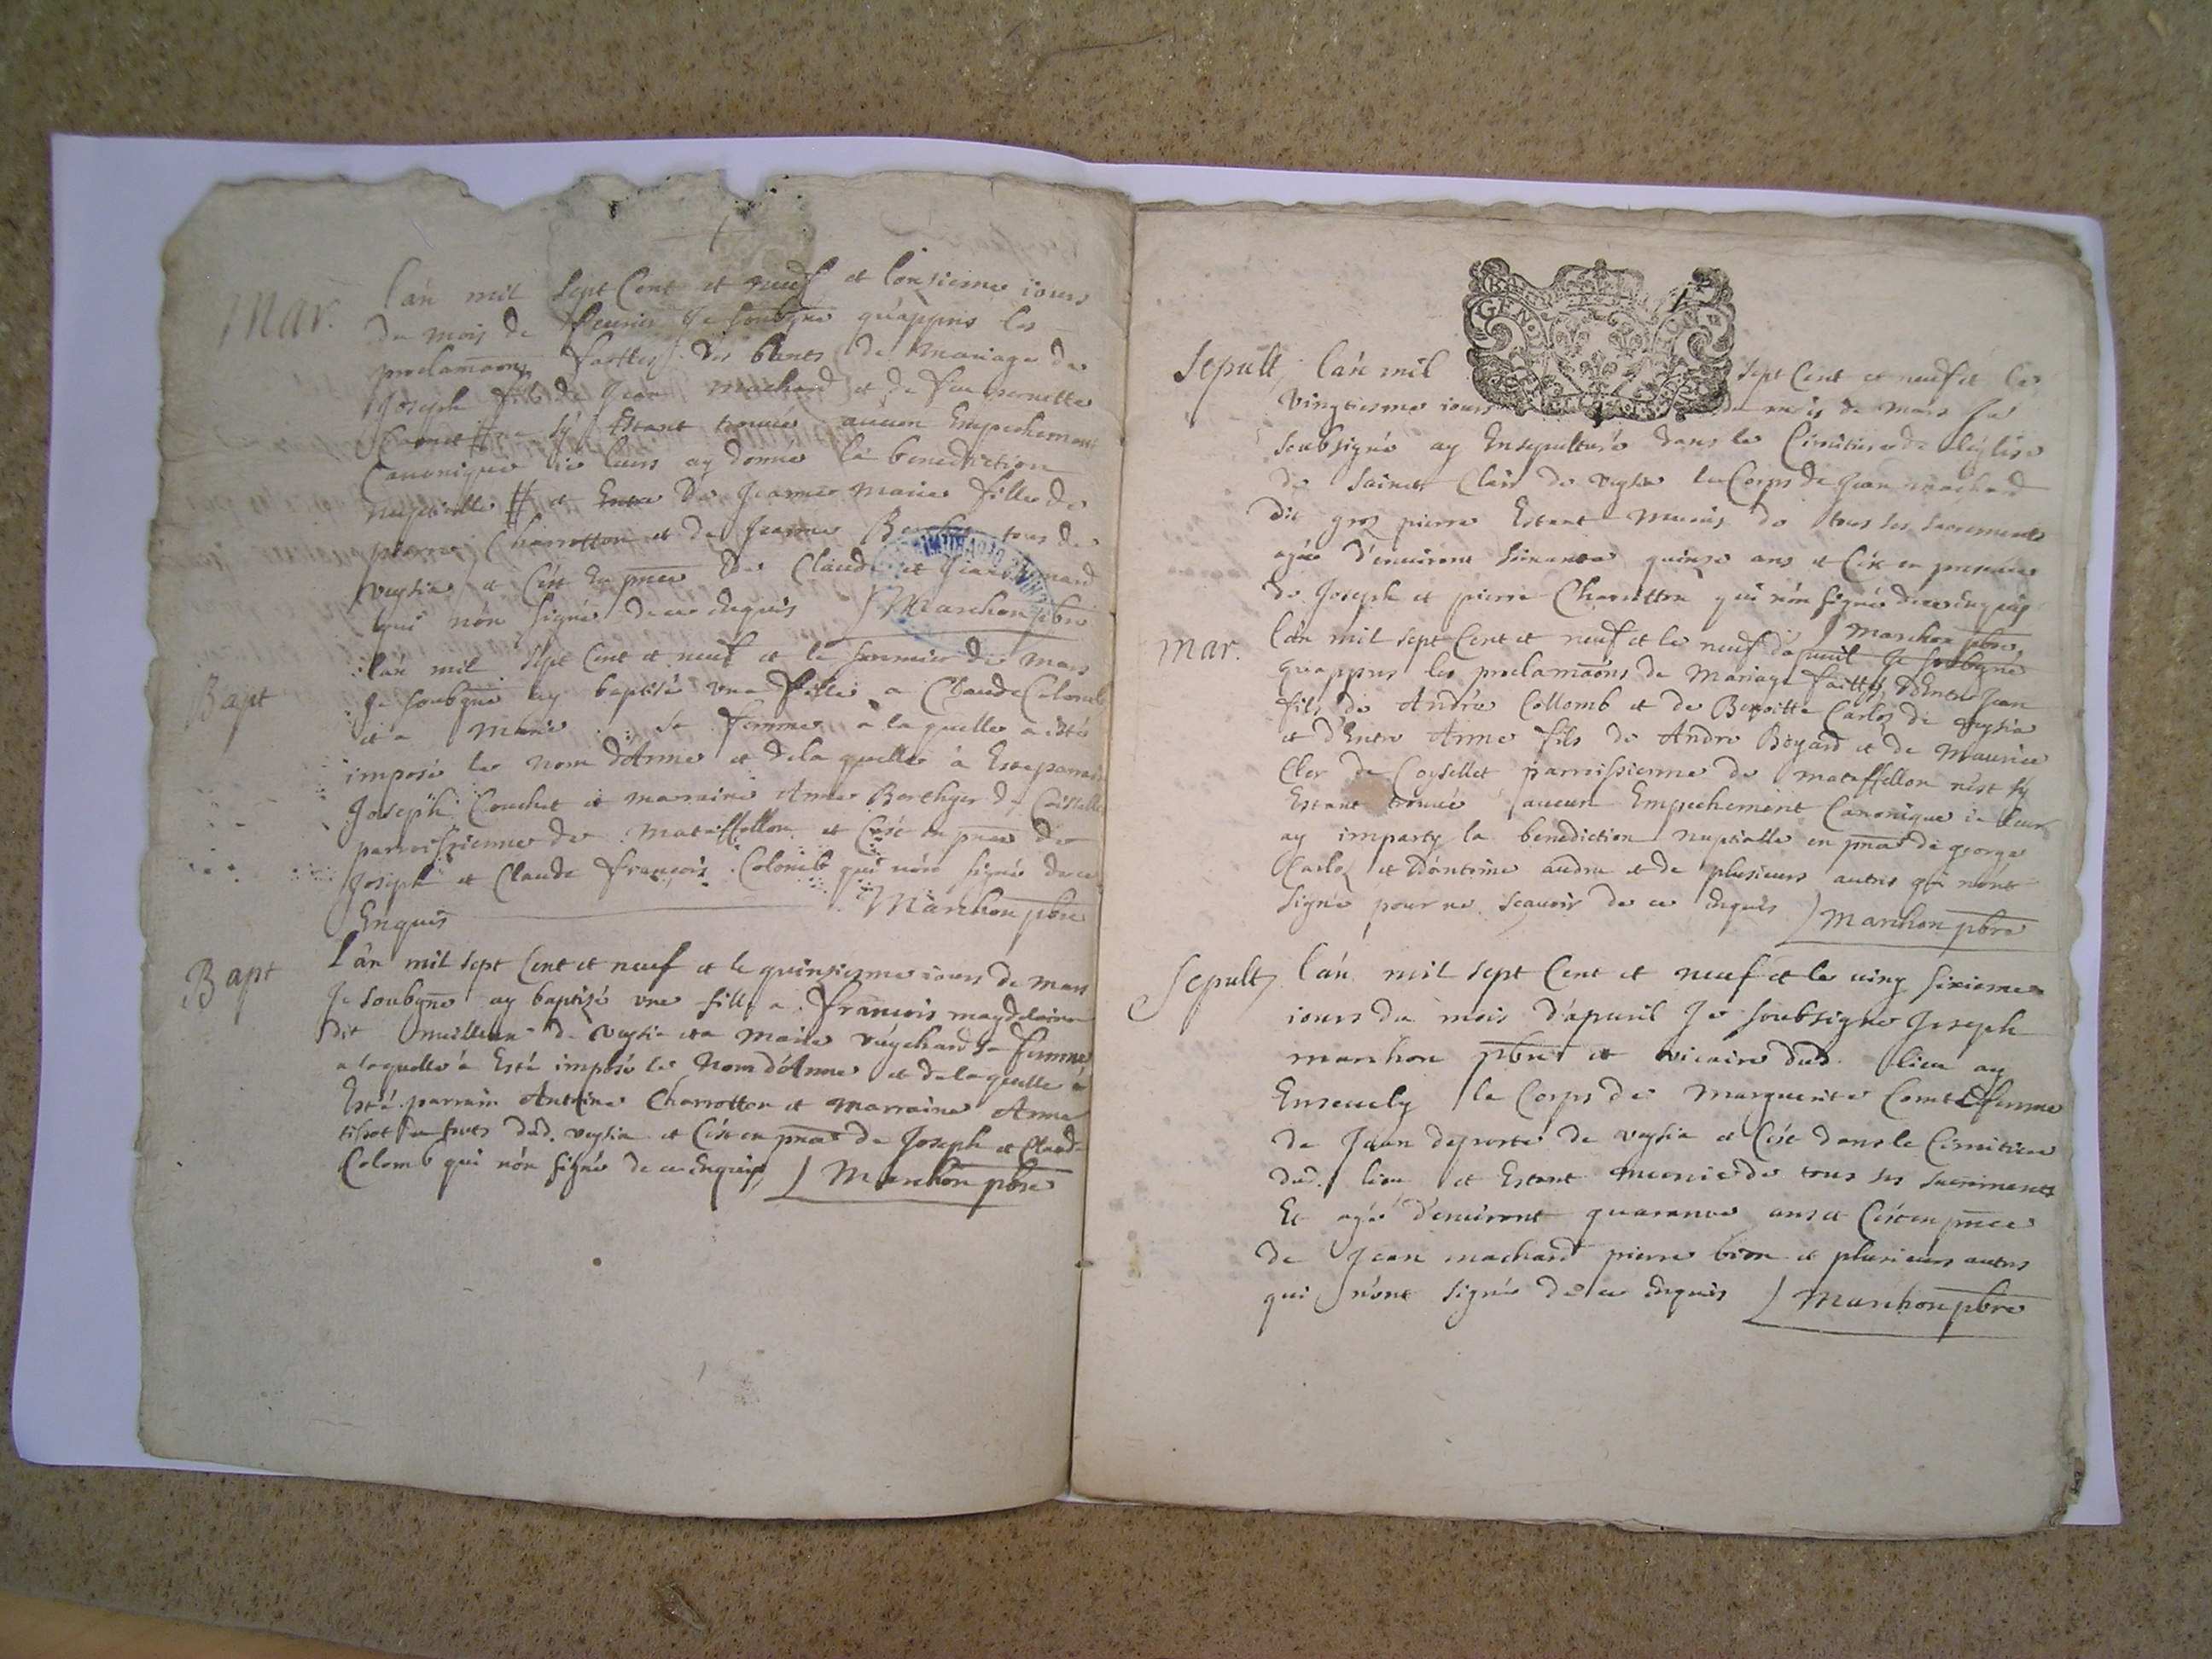 Mar. l'an mil sept Cent et neuf et l'onsieme iours
du mois de feurier Je soubzne qu'appres les
proclamaons faittes des bants de Mariage de
Joseph fils de Jean machard et de feu
Carret # ne sy Estant trouué aucun Empechement
Canonique ie leurs ay donne la benediction
nuptialle # et Entre De Jeanne Marie fille de
pierre Charrotton et de Jeanne tous de
veysia et C'est En pnce De Claude et
qui nón signé de ce Enquis Marchon pbre
Bapt l'an mil sept Cent et neuf et le premier de Mars
Je soubzne ay baptisé vne fille a Claude Colomb
et a Marie sa femme a la quelle a esté
imposé le nom d'Anne et de la quelle à Esté parrain
Joseph Couchet et marraine Anne Berthyer de
parroissienne de Mataffellon et C'est en pnce de
Joseph et Claude françois Colomb qui nónt signé de ce
Enquis Marchon pbre
Bapt L'an mil sept Cent et neuf et le quinsieme iours de Mars
Je soubzne ay baptizé vne fille a françois magdelaine
dit de veysia et a Marie Vuychard sa femme
a laquelle à Esté imposé le Nom d'Anne et de la quelle à
Esté parrain Antoine Charrotton et Marraine Anne
tissot dud. veysia et C'est en pnce de Joseph et Claude
Colomb qui nón signé de ce Enquis Marchon pbre
GEN
Sepult l'an mil sept Cent et neuf et le
Vingtiesme iours du mois de Mars Je
soubsigné ay Ensepulturé dans le Cimitiere de l'eglise
de Sainct Clair de veysia le Corps de Jean machard
dit groz pierre Estant Munis de tous les sacrements
agée d'enuiront soixante quinze ans et C'est en presence
de Joseph et pierre Charrotton qui nón signé de ce enquis
Marchon pbre
Mar. l'an mil sept Cent et neuf et le neuf d'apuril Je soubzne
qu'appres les proclamaons de Mariage faittes d'Entre Jean
fils de André Collomb et de Benoitte Carloz de veysia
et d'Entre Anne fils de Andre Boyard et de Maurice
Cler de Coysellet parroissienne de mataffellon n'est sy
Estant trouué aucun Empechement Canonique ie leur
ay imparty la benediction nuptialle en pnce de george
Carloz et D'antoine andre et de plusieurs autres qui nónt
signé pour ne scauoir de ce Enquis Marchon pbre
Sepult l'an mil sept Cent et neuf et le uing sixieme
iours du mois d'apuril Je soubsigne Joseph
marchon pbre et vicaire dud. lieu ay
Enseuely le Corps de Marguerite Comte femme
de Jean deporte de veysia et C'est dans le Cimitiere
dud. lieu et Estant Munie de tous ses sacrements
Et agé d'enuiront quarante ans et C'est en pnce
de Jean machard pierre bion et plusieurs autres
qui n'ónt signé de ce Enquis Marchon pbre